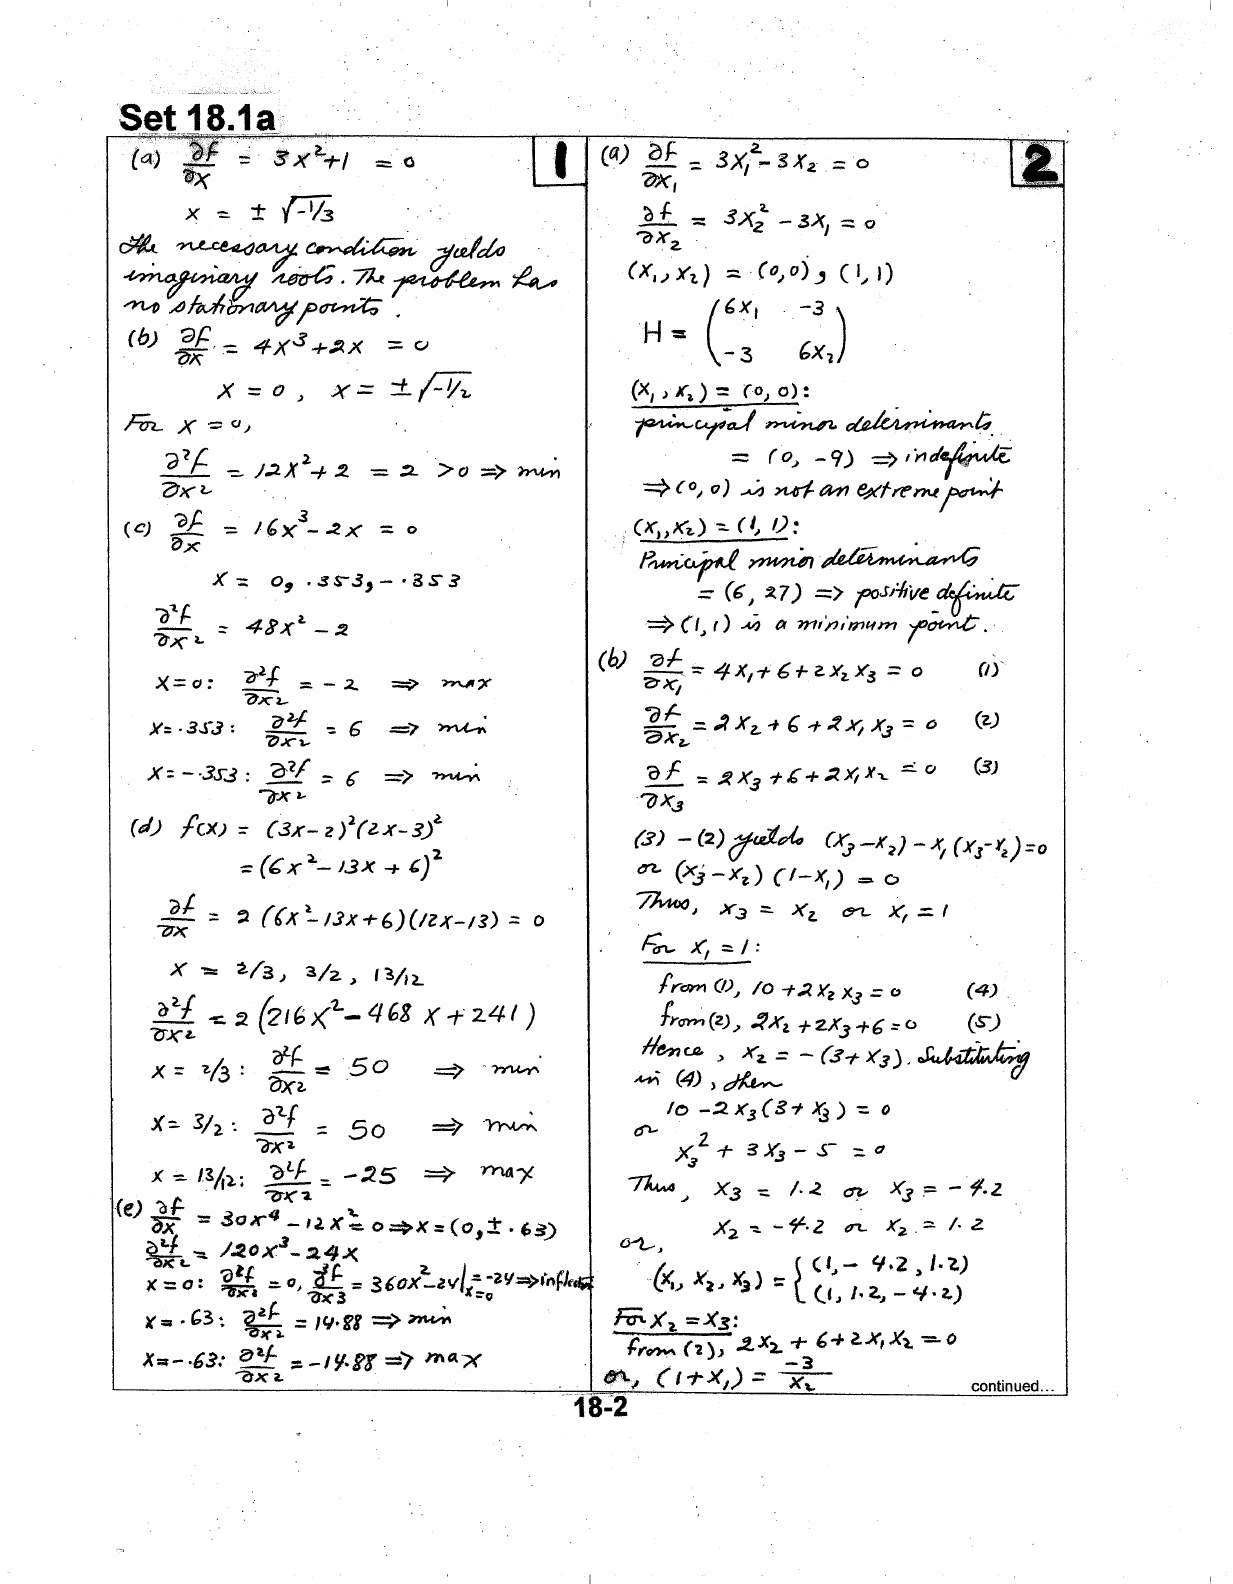 Set 18.1a
1
(a) ∂f/∂x = 3x²+1 = 0
x = ± √-1/3
The necessary condition yields
imaginary roots. The problem has
no stationary points.
(b) ∂f/∂x = 4x³+2x = 0
x = 0, x = ± √-1/2
For x = 0,
∂²f/∂x² = 12x²+2 = 2 >0 ⇒ min
(c) ∂f/∂x = 16x³-2x = 0
x = 0, .353, -.353
∂²f/∂x² = 48x² - 2
x=0: ∂²f/∂x² = -2 ⇒ max
x=.353: ∂²f/∂x² = 6 ⇒ min
x=-.353: ∂²f/∂x² = 6 ⇒ min
(d) f(x) = (3x-2)²(2x-3)²
= (6x²-13x+6)²
∂f/∂x = 2(6x²-13x+6)(12x-13) = 0
x = 2/3, 3/2, 13/12
∂²f/∂x² = 2(216x²-468x+241)
x = 2/3: ∂²f/∂x² = 50 ⇒ min
x= 3/2: ∂²f/∂x² = 50 ⇒ min
x = 13/12: ∂²f/∂x² = -25 ⇒ max
(e) ∂f/∂x = 30x⁴-12x²=0⇒x=(0,±.63)
∂²f/∂x² = 120x³-24x
x=0: ∂²f/∂x² =0, ∂³f/∂x3 = 360x²-24|x=0 = -24⇒inflection
x=.63: ∂²f/∂x² = 14.88 ⇒ min
x=-.63: ∂²f/∂x² = -14.88 ⇒ max
2
(a) ∂f/∂x₁ = 3x₁²-3x₂ = 0
∂f/∂x₂ = 3x₂²-3x₁ = 0
(x₁,x₂) = (0,0), (1,1)
H = (6x₁ -3
-3 6x₂)
(x₁,x₂) = (0,0):
principal minor determinants
= (0, -9) ⇒ indefinite
⇒(0,0) is not an extreme point
(x₁,x₂) = (1,1):
Principal minor determinants
= (6, 27) => positive definite
⇒(1,1) is a minimum point.
(b) ∂f/∂x₁ = 4x₁+6+2x₂x₃ = 0 (1)
∂f/∂x₂ = 2x₂+6+2x₁x₃ = 0 (2)
∂f/∂x₃ = 2x₃+6+2x₁x₂ = 0 (3)
(3) - (2) yields (x₃-x₂)-x₁(x₃-x₂)=0
or (x₃-x₂)(1-x₁) = 0
Thus, x₃ = x₂ or x₁ = 1
For x₁ = 1:
from (1), 10+2x₂x₃ = 0 (4)
from (2), 2x₂+2x₃+6=0 (5)
Hence, x₂ = -(3+x₃). Substituting
in (4), then
10-2x₃(3+x₃) = 0
or
x₃²+3x₃-5 = 0
Thus, x₃ = 1.2 or x₃ = -4.2
x₂ = -4.2 or x₂ = 1.2
or,
(x₁, x₂, x₃) = {(1, -4.2, 1.2)
(1, 1.2, -4.2)
For x₂ = x₃:
from (2), 2x₂+6+2x₁x₂ = 0
or, (1+x₁) = -3/x₂
continued...
18-2